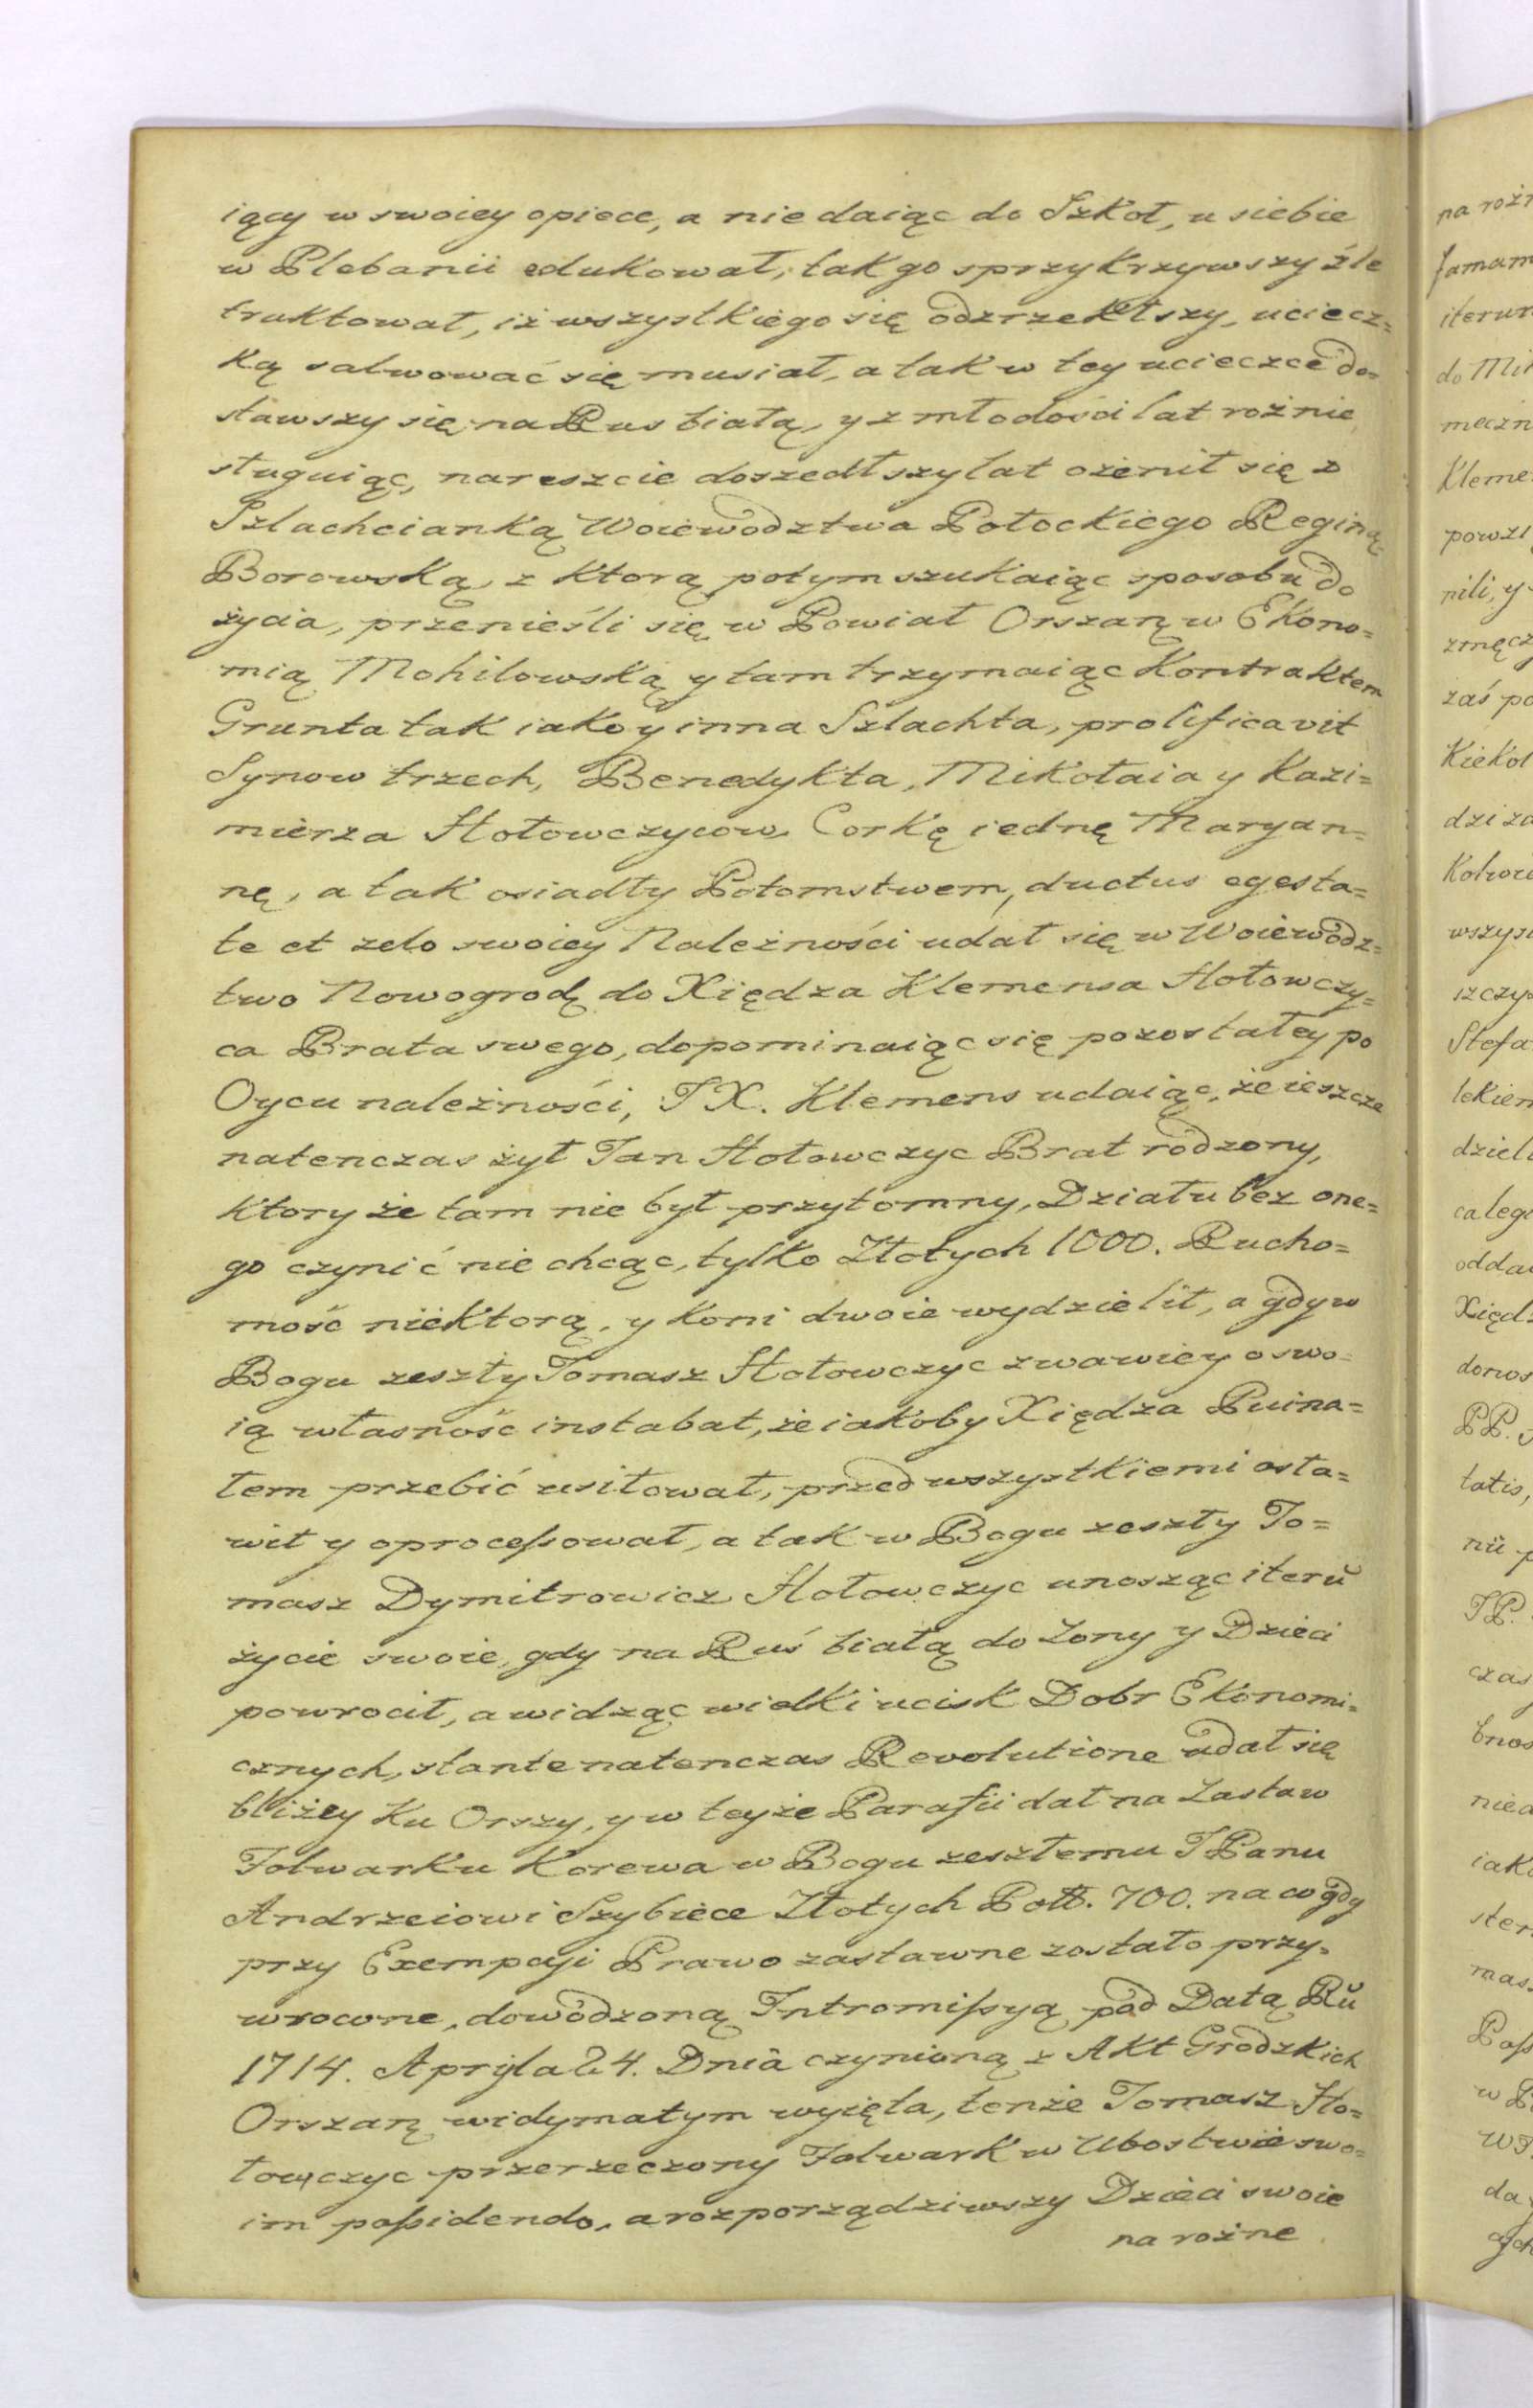 iący w swoiey opiece, a nie daiąc do Szkoł, u siebie
w Plebanii edukował, tak go sprzykrzywszy źle
traktował, iż wszystkiego się odzrzekłszy, uciecz=
ką salwować się musiał, a tak w tey ucieczce do=
stawszy się na Rus białą, y z młodości lat rożnie
sługuiąc, nareszcie doszedłszy lat ożenił się z
Szlachcianką Woiewodztwa Połockiego Reginą
Borowską, z ktorą potym szukaiąc sposobu do
życia, przenieśli się w Powiat Orszaɳ w Ekono=
mią Mohilowską y tam trzymaiąc Kontraktem
Grunta tak iako y inna Szlachta, prolificavit
Synow trzech, Benedykta, Mikołaia y Kazi=
mierza Hołowczycow, Corkę iednę Maryan=
nę, a tak osiadły Potomstwem, ductus egesta=
te et zelo swoiey Należności udał się w Woiewodz=
two Nowogrodɀ do Xiędza Klemensa Hołowczy=
ca Brata swego, dopominaiąc się pozostałey po
Oycu należności, J X. Klemens udaiąc, że ieszcze
natenczas żył Jan Hołowczyc Brat rodzony,
ktory że tam nie był przytomny, Działu bez one=
go czynić nie chcąc, tylko Złotych 1000. Rucho=
mość niektorą, y koni dwoie wydzielił, a gdy w
Bogu zeszły Tomasz Hołowczyc zwawiey o swo=
ią własność instabat, że iakoby Xiędza Puina=
łem przebić usiłował, przed wszystkiemi osła=
wił y oprocessował, a tak w Bogu zeszły To=
masz Dymitrowicz Hołowczyc unosząc iterũ
życie swoie, gdy na Ruś białą do Zony y Dzieci
powrocił, a widząc wielki ucisk Dobr Ekonomi=
cznych, stante natenczas Revolutione udał się
bliżey Ku Orszy, y w teyże Parafii dał na Zastaw
Folwarku Korewa w Bogu zeszłemu J Panu
Andrzeiowi Szybiece Złotych Poll. 700. na co gdy
przy Exempcyi Prawo zastawne zostało przy=
wrocone, dowodzoną Intromissyą pod Datą Rũ
1714. Apryla 24. Dnia czynioną z Akt Grodzkich
Orszaɳ widymatym wyięta, tenże Tomasz Ho=
łowczyc przerzeczony Folwark w Ubostwie swo=
im possidendo, a rozporządziwszy Dzieci swoie
na rożne